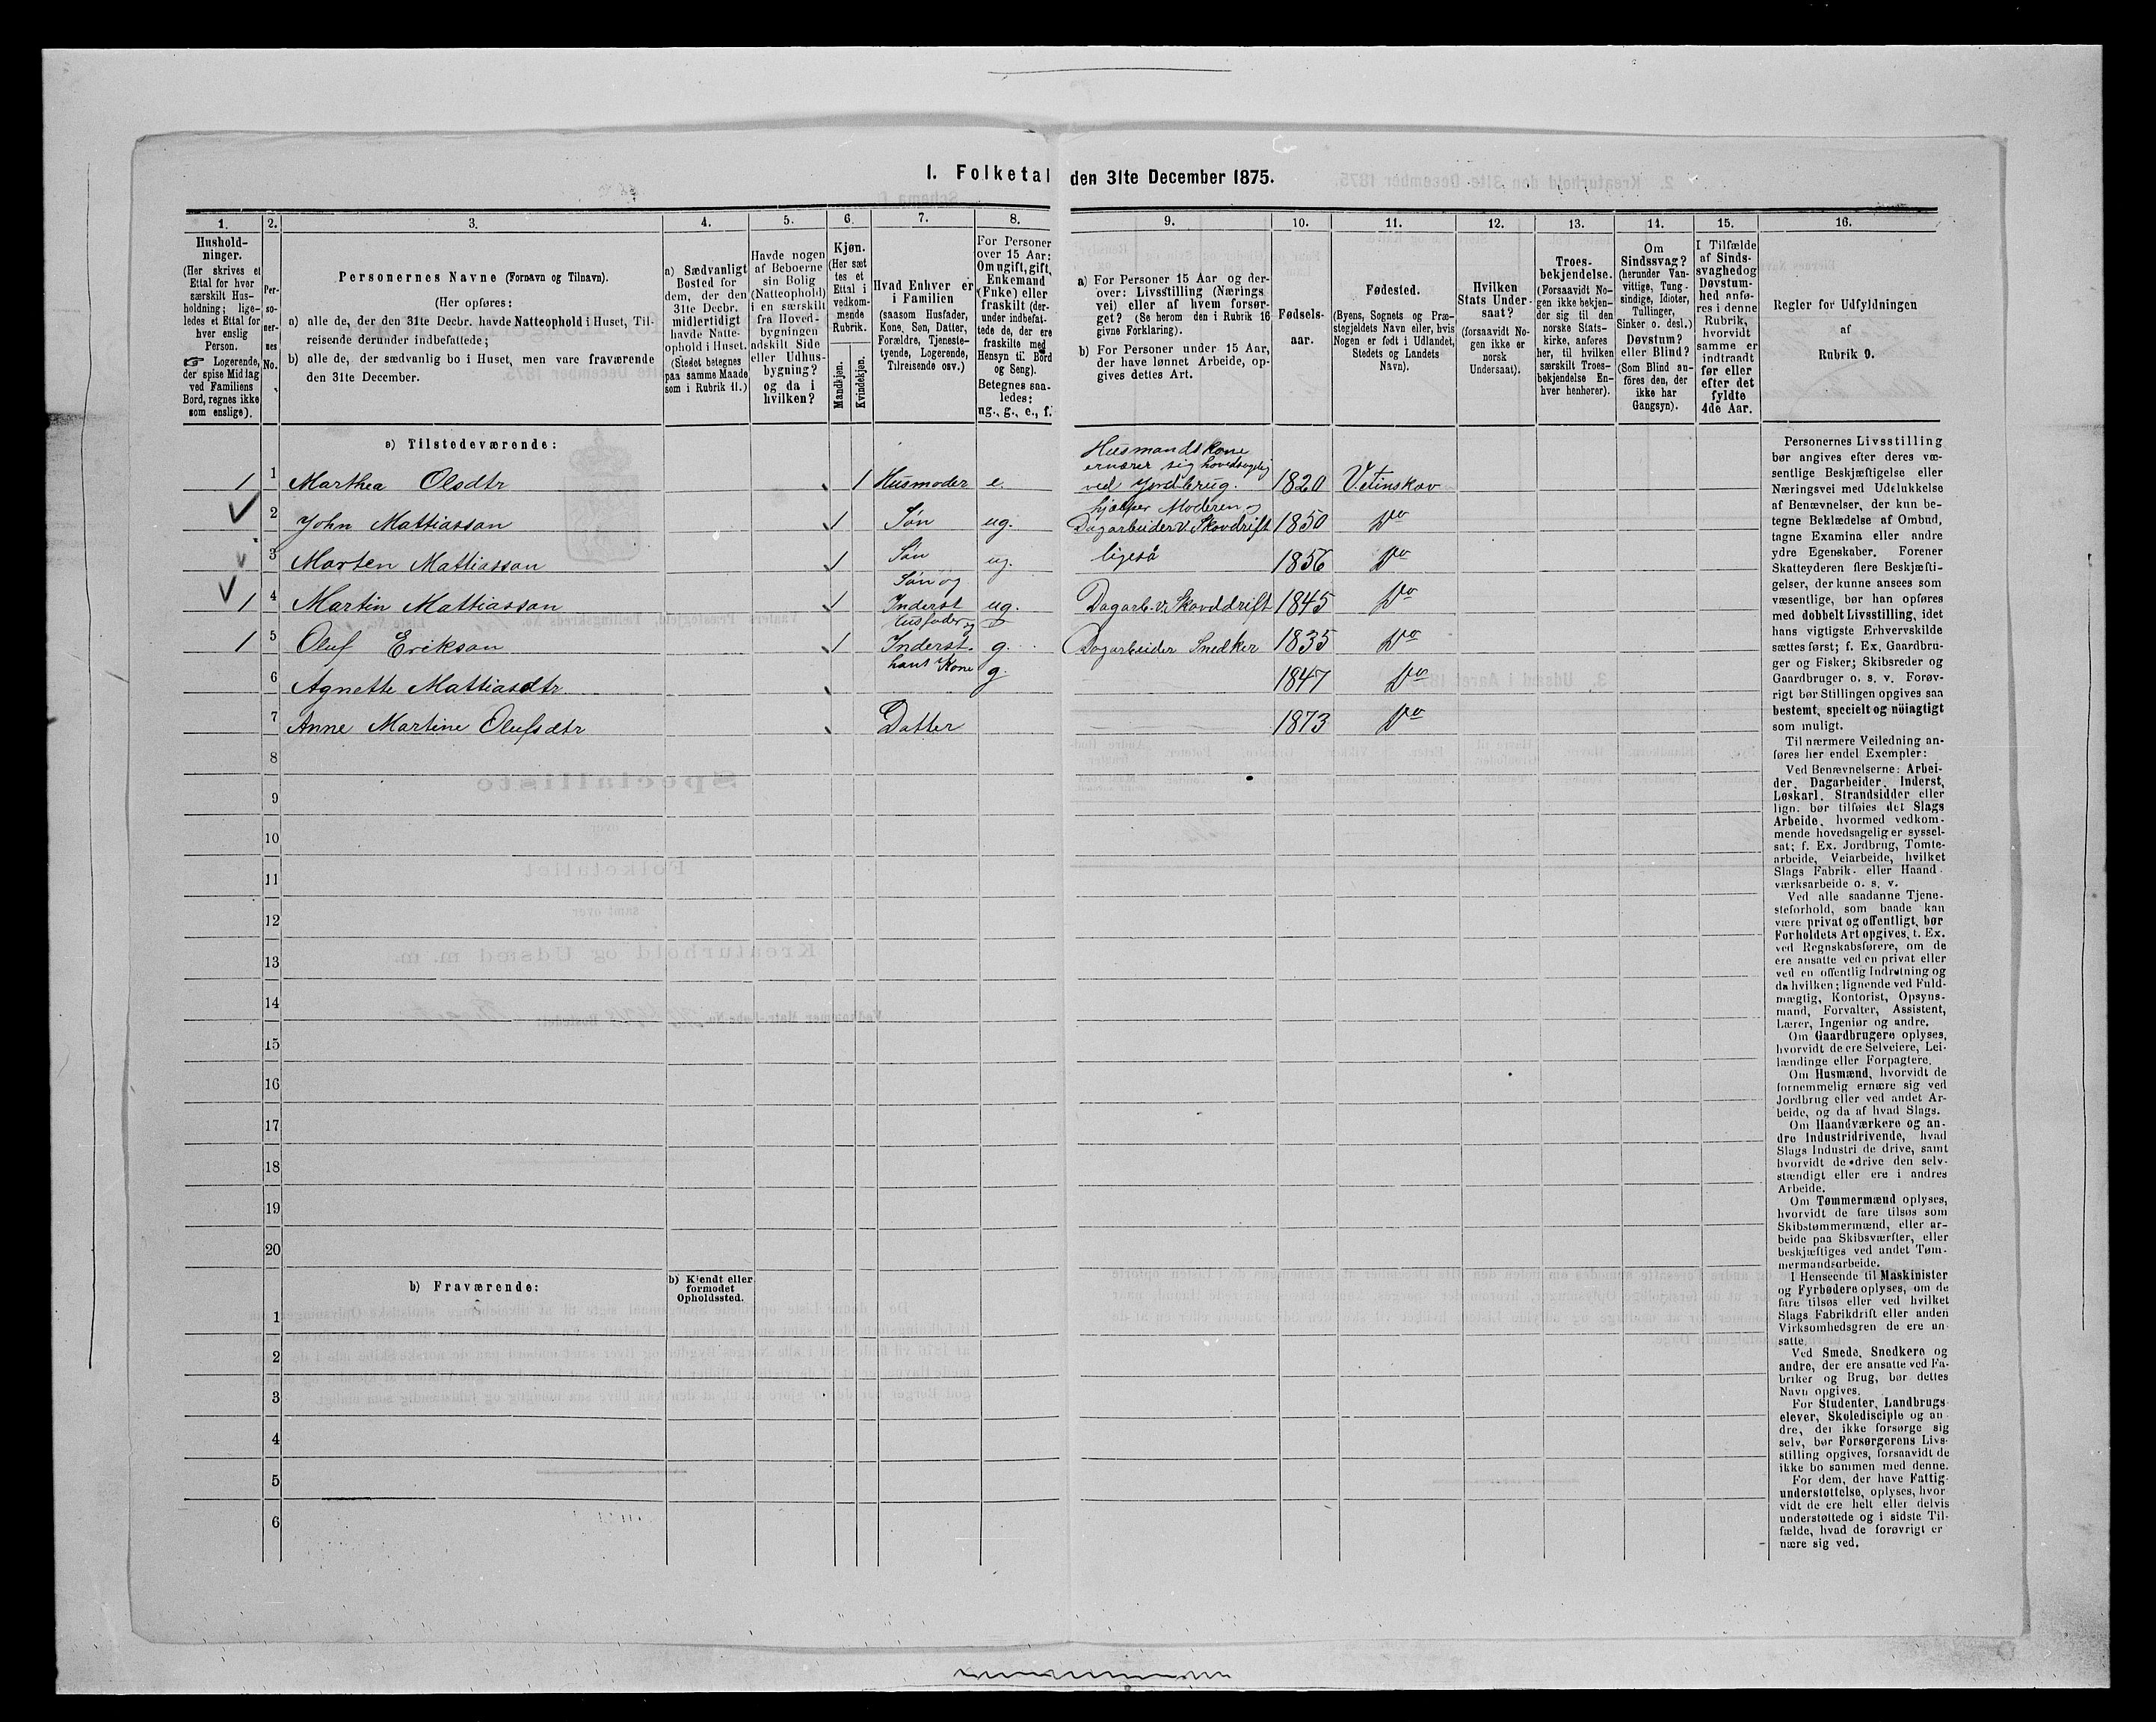 I. Folketal den 31te December 1875.
1. 2. 3. 4. 5. 6. 7. 8. 9. 10. 11. 12. 13. 14. 15. 16.
Hushold-
ninger.
(Her skrives et
Ettal for hver
særskilt Hus-
holdning; lige-
ledes et Ettal for
hver enslig
Person.
☞ Logerende,
der spise Middag
ved Familiens
Bord, regnes ikke
som enslige).
Per-
so-
ner-
nes
No.
Personernes Navne (Fornavn og Tilnavn).
(Her opføres:
a) alle de, der den 31te Decbr. havde Natteophold i Huset, Til-
reisende derunder indbefattede;
b) alle de, der sædvanlig bo i Huset, men vare fraværende
den 31te December.
a) Sædvanligt
Bosted for
dem, der den
31te Decbr.
midlertidigt
havde Natte-
ophold i Huset.
(Stedet betegnes
paa samme Maade
som i Rubrik 11.)
Havde nogen
af Beboerne
sin Bolig
(Natteophold)
i en særskilt
fra Hoved-
bygningen
adskilt Side
eller Udhus-
bygning?
og da i
hvilken?
Kjøn.
(Her sæt
tes et
Ettal i
vedkom-
mende
Rubrik.
Mandkjøn.
Kvindekjøn.
Hvad Enhver er
i Familien
(saasom Husfader,
Kone, Søn, Datter,
Forældre, Tjeneste-
tyende, Logerende,
Tilreisende osv.)
For Personer
over 15 Aar:
Om ugift, gift,
Enkemand
(Enke) eller
fraskilt (der-
under indbefat-
tede de, der ere
fraskilte med
Hensyn til Bord
og Seng).
Betegnes saa-
ledes:
ug., g., e., f.
a) For Personer 15 Aar og der-
over: Livsstilling (Nærings
vei) eller af hvem forsør-
get? (Se herom den i Rubrik 16
givne Forklaring).
b) For Personer under 15 Aar,
der have lønnet Arbeide, op-
gives dettes Art.
Fødsels-
aar.
Fødested.
(Byens, Sognets og Præ-
stegjeldets Navn eller, hvis
Nogen er født i Udlandet,
Stedets og Landets
Navn).
Hvilken
Stats Under-
saat?
(forsaavidt No-
gen ikke er
norsk
Undersaat).
Troes-
bekjendelse.
(Forsaavidt No-
gen ikke bekjen-
der sig til den
norske Stats-
kirke, anføres
her, til hvilken
særskilt Troes-
bekjendelse En-
hver henhører).
Om
Sindssvag?
(herunder Van-
vittige, Tung-
sindige, Idioter,
Tullinger,
Sinker o. desl.)
Døvstum?
eller Blind?
(Som Blind an-
føres den, der
ikke har
Gangsyn).
I Tilfælde
af Sinds-
svaghed og
Døvstum-
hed anfø-
res i denne
Rubrik,
hvorvidt
samme er
indtraadt
før eller
efter det
fyldte
4de Aar.
Regler for Udfyldningen
af
Rubrik 9.
a) Tilstedeværende:
1 1 Marthea Olsdtr 1 Husmoder e. Husmandskone ernærer sig hovedsagelig ved Jordbrug. 1820 V.tinskov
2 John Mattiasson Søn ug. hjælper Moderen Dagarbeider v. Skovdrift 1850 Do
3 Marten Mattiasson Søn ug. ligeså 1856 Do
1 4 Martin Mattiasson Søn og Inderst ug. Dagarb. v. Skovddrift 1845 Do
1 5 Oluf Erikson Husfader og Inderst. g. Dagarbeider Snedker 1835 Do
6 Agnette Mattiasdtr hans Kone g. 1847 Do
7 Anne Martine Olufsdtr Datter 1873 Do
8
9
10
11
12
13
14
15
16
17
18
19
20
b) Fraværende:
b) Kjendt eller
formodet
Opholdssted.
1
2
3
4
5
6
Personernes Livsstilling
bør angives efter deres væ-
sentlige Beskjæftigelse eller
Næringsvei med Udelukkelse
af Benævnelser, der kun be-
tegne Beklædelse af Ombud,
tagne Examina eller andre
ydre Egenskaber. Forener
Skatteyderen flere Beskjæfti-
gelser, der kunne ansees som
væsentlige, bør han opføres
med dobbelt Livsstilling, idet
hans vigtigste Erhvervskilde
sættes først; f. Ex. Gaardbru-
ger og Fisker; Skibsreder og
Gaardbruger o. s. v. Forøv-
rigt bør Stillingen opgives saa
bestemt, specielt og nöiagtigt
som muligt.
Til nærmere Veiledning an-
føres her endel Exempler:
Ved Benævnelserne: Arbei-
der, Dagarbeider, Inderst,
Løskarl, Strandsidder eller
lign. bør tilføies det Slags
Arbeide, hvormed vedkom-
mende hovedsagelig er syssel-
sat; f. Ex. Jordbrug, Tomte-
arbeide, Veiarbeide, hvilket
Slags Fabrik- eller Haand-
værksarbeide o. s. v.
Ved alle saadanne Tjene-
steforhold, som baade kan
være privat og offentligt, bør
Forholdets Art opgives, t. Ex.
ved Regnskabsførere, om de
ere ansatte ved en privat eller
ved en offentlig Indretning og
da hvilken; lignende ved Fuld-
mægtig, Kontorist, Opsyns-
mand, Forvalter, Assistent,
Lærer, Ingeniør og andre.
Om Gaardbrugere oplyses,
hvorvidt de ere Selveiere, Lei-
lændinge eller Forpagtere.
Om Husmænd, hvorvidt de
fornemmelig ernære sig ved
Jordbrug eller ved andet Ar-
beide, og da af hvad Slags.
Om Haandværkere og an-
dre Industridrivende, hvad
Slags Industri de drive, samt
hvorvidt de drive den selv-
stændigt eller ere i andres
Arbeide.
Om Tømmermænd oplyses,
hvorvidt de fare tilsøs som
Skibstømmermænd, eller ar-
beide paa Skibsværfter, eller
beskjæftiges ved andet Tøm-
mermandsarbeide.
I Henseende til Maskinister
og Fyrbødere oplyses, om de
fare tilsøs eller ved hvilket
Slags Fabrikdrift eller anden
Virksomhedsgren de ere an-
satte.
Ved Smede, Snedkere og
andre, der ere ansatte ved Fa-
briker og Brug, bør dettes
Navn opgives.
For Studenter, Landbrugs-
elever, Skoledisciple og an-
dre, der ikke forsørge sig
selv, bør Forsørgerens Livs-
stilling opgives, forsaavidt de
ikke bo sammen med denne.
For dem, der have Fattig-
understøttelse, oplyses, hvor-
vidt de ere helt eller delvis
understøttede og i sidste Til-
fælde, hvad de forøvrigt er-
nære sig ved.